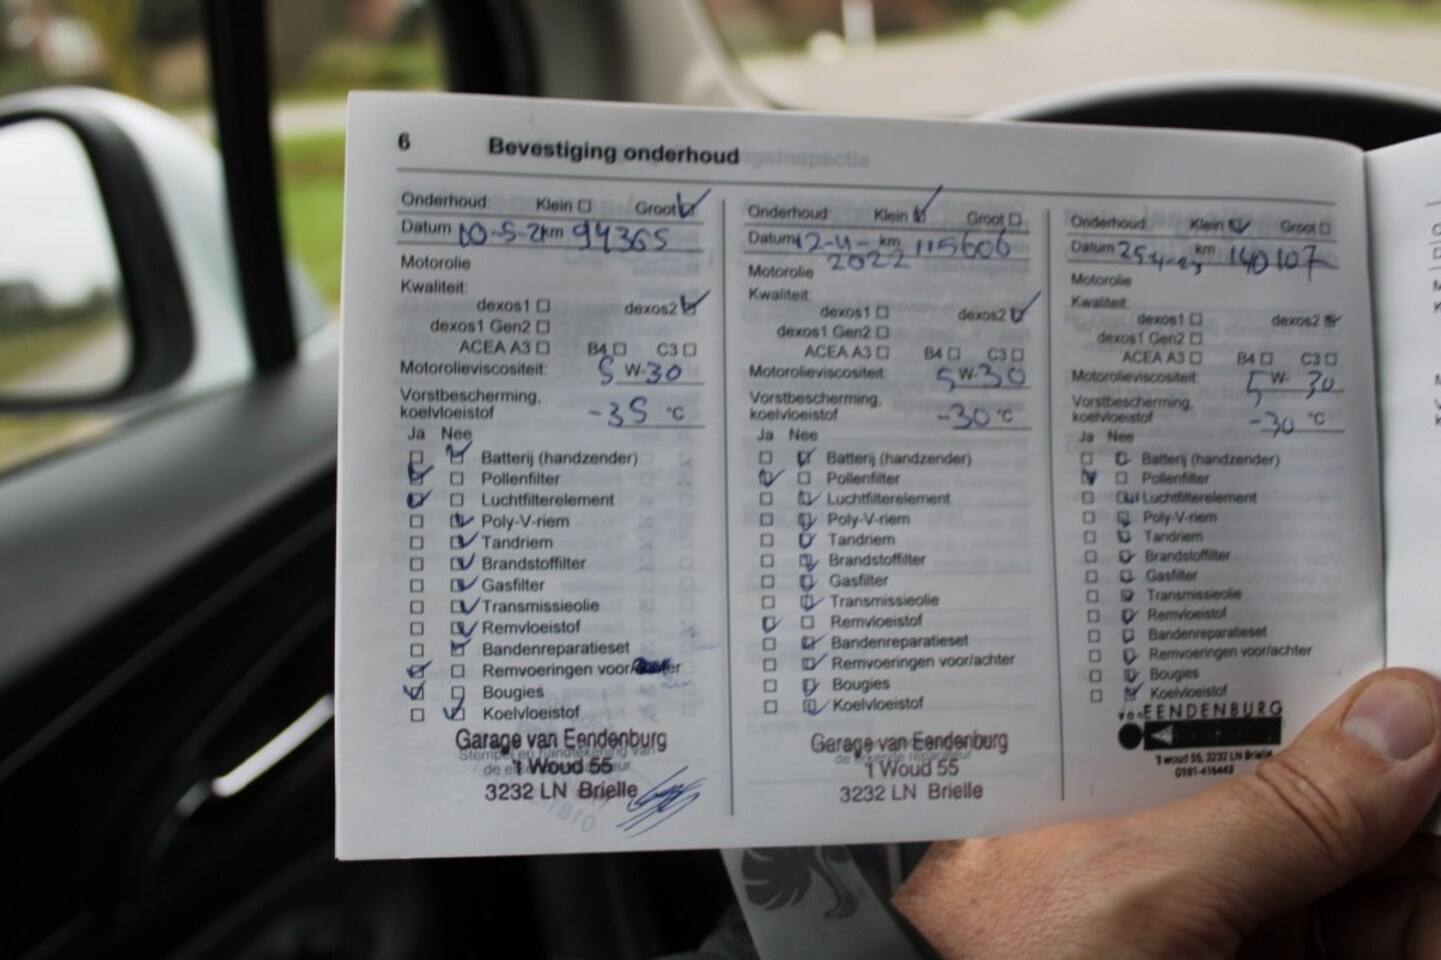 6 Bevestiging onderhoud
Onderhoud: Klein Groot
Datum 10-5-21 km 94365
Motorolie
Kwaliteit:
dexos1 dexos2
dexos1 Gen2
ACEA A3 B4 C3
Motorolieviscositeit: 5 W-30
Vorstbescherming,
koelvloeistof -35 °C
Ja Nee
Batterij (handzender)
Pollenfilter
Luchtfilterelement
Poly-V-riem
Tandriem
Brandstoffilter
Gasfilter
Transmissieolie
Remvloeistof
Bandenreparatieset
Remvoeringen voor/achter
Bougies
Koelvloeistof
Garage van Eendenburg
't Woud 55
3232 LN Brielle
Onderhoud: Klein Groot
Datum 12-4- km 115606
2022
Motorolie
Kwaliteit:
dexos1 dexos2
dexos1 Gen2
ACEA A3 B4 C3
Motorolieviscositeit: 5 W-30
Vorstbescherming,
koelvloeistof -30 °C
Ja Nee
Batterij (handzender)
Pollenfilter
Luchtfilterelement
Poly-V-riem
Tandriem
Brandstoffilter
Gasfilter
Transmissieolie
Remvloeistof
Bandenreparatieset
Remvoeringen voor/achter
Bougies
Koelvloeistof
Garage van Eendenburg
't Woud 55
3232 LN Brielle
Onderhoud: Klein Groot
Datum 25-4-23 km 140107
Motorolie
Kwaliteit:
dexos1 dexos2
dexos1 Gen2
ACEA A3 B4 C3
Motorolieviscositeit: 5 W- 30
Vorstbescherming,
koelvloeistof -30 °C
Ja Nee
Batterij (handzender)
Pollenfilter
Luchtfilterelement
Poly-V-riem
Tandriem
Brandstoffilter
Gasfilter
Transmissieolie
Remvloeistof
Bandenreparatieset
Remvoeringen voor/achter
Bougies
Koelvloeistof
van EENDENBURG
't woud 55, 3232 LN Brielle
0181-416443